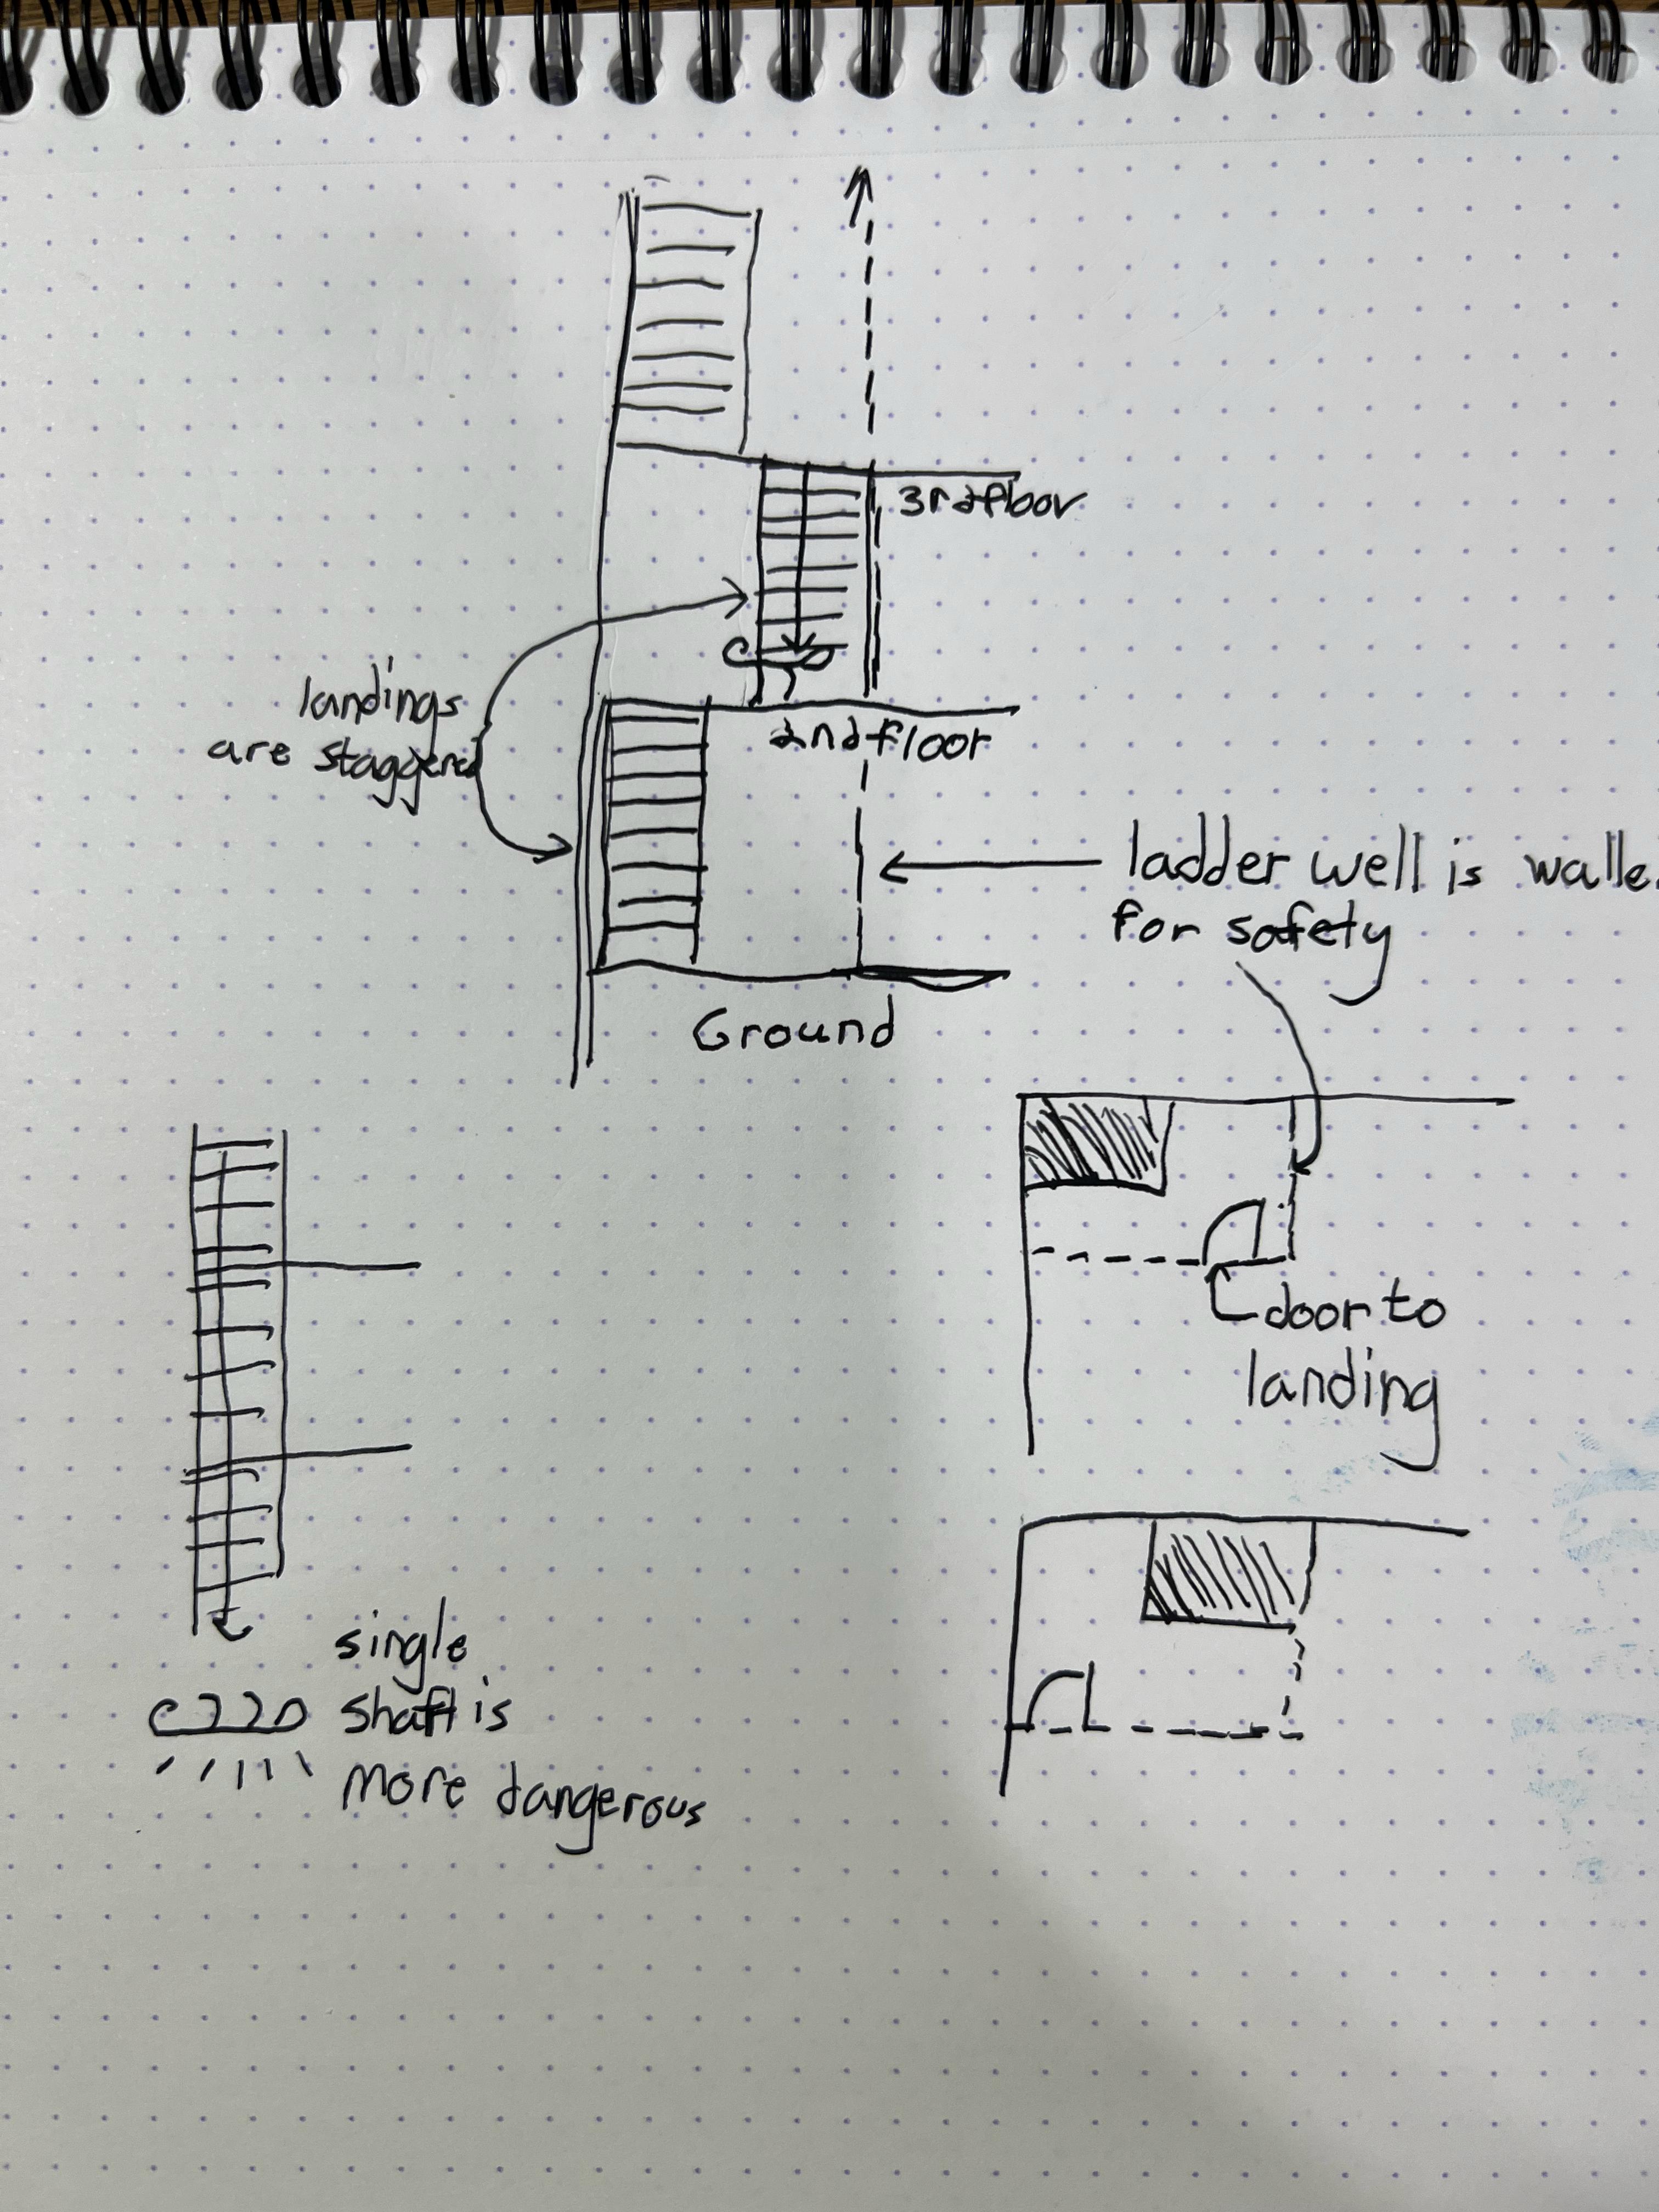 3rd floor
landings
are staggered
2nd floor
ladder well is walle
for safety
Ground
door to
landing
single
shaft is
more dangerous